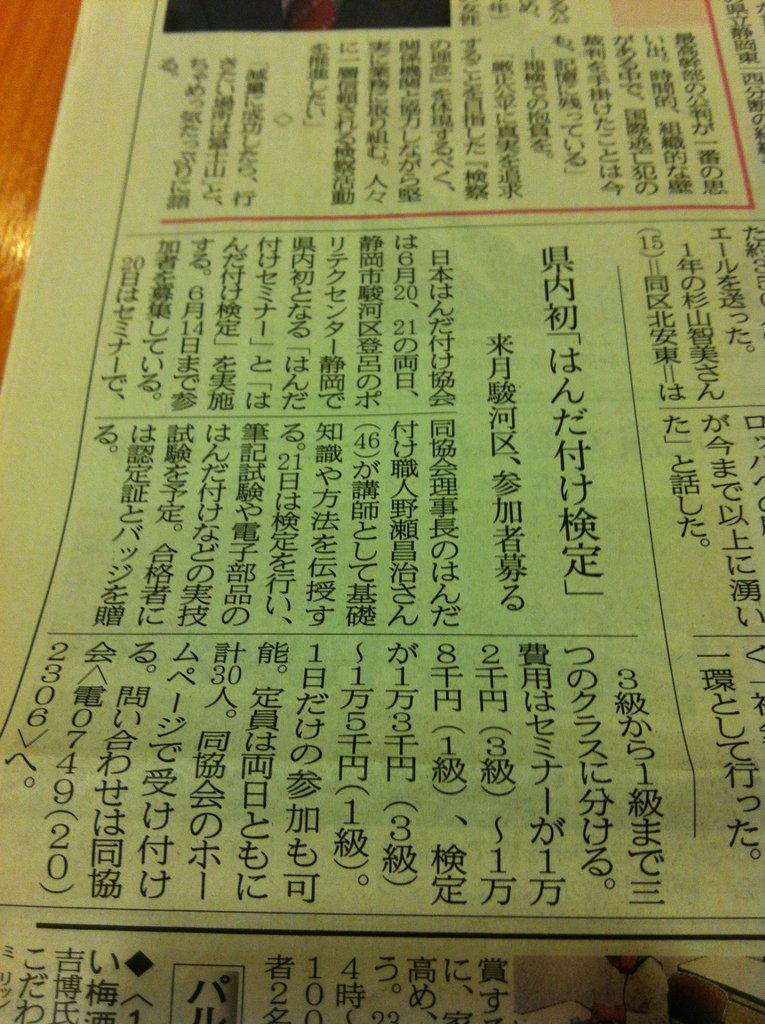 県立静岡東
西分断の
最高幹部の公判が一番の思
い出。時間的、組織的な壁
がある中で、国際逃亡犯の
裁判を手掛けたことは今
も、記憶に残っている」
―地検での抱負を。
「厳正公平に真実を追求
することを目指した『検察
の理念』を体現するべく、
関係機関と協力しながら堅
実に業務に取り組む。人々
に一層信頼される検察活動
を推進したい」
◇
「減量に成功したら、行
きたい場所は富士山」と、
ちゃめっ気たっぷりに語
る。
エールを送った。
1年の杉山智美さん
(15)=同区北安東=は
が今まで以上に湧い
た」と話した。
一環として行った。
県内初「はんだ付け検定」
来月駿河区、参加者募る
日本はんだ付け協会
は6月20、21の両日、
静岡市駿河区登呂のポ
リテクセンター静岡で
県内初となる「はんだ
付けセミナー」と「は
んだ付け検定」を実施
する。6月14日まで参
加者を募集している。
20日はセミナーで、
同協会理事長のはんだ
付け職人野瀬昌治さん
(46)が講師として基礎
知識や方法を伝授す
る。21日は検定を行い、
筆記試験や電子部品の
はんだ付けなどの実技
試験を予定。合格者に
は認定証とバッジを贈
る。
3級から1級まで三
つのクラスに分ける。
費用はセミナーが1万
2千円(3級)〜1万
8千円(1級)、検定
が1万3千円(3級)
〜1万5千円(1級)。
1日だけの参加も可
能。定員は両日ともに
計30人。同協会のホー
ムページで受け付け
る。問い合わせは同協
会<電0749(20)
2306>へ。
賞する
に、家
高め、
う。23
4時〜
100
者2名
パル
い梅酒
吉博氏
こだわ